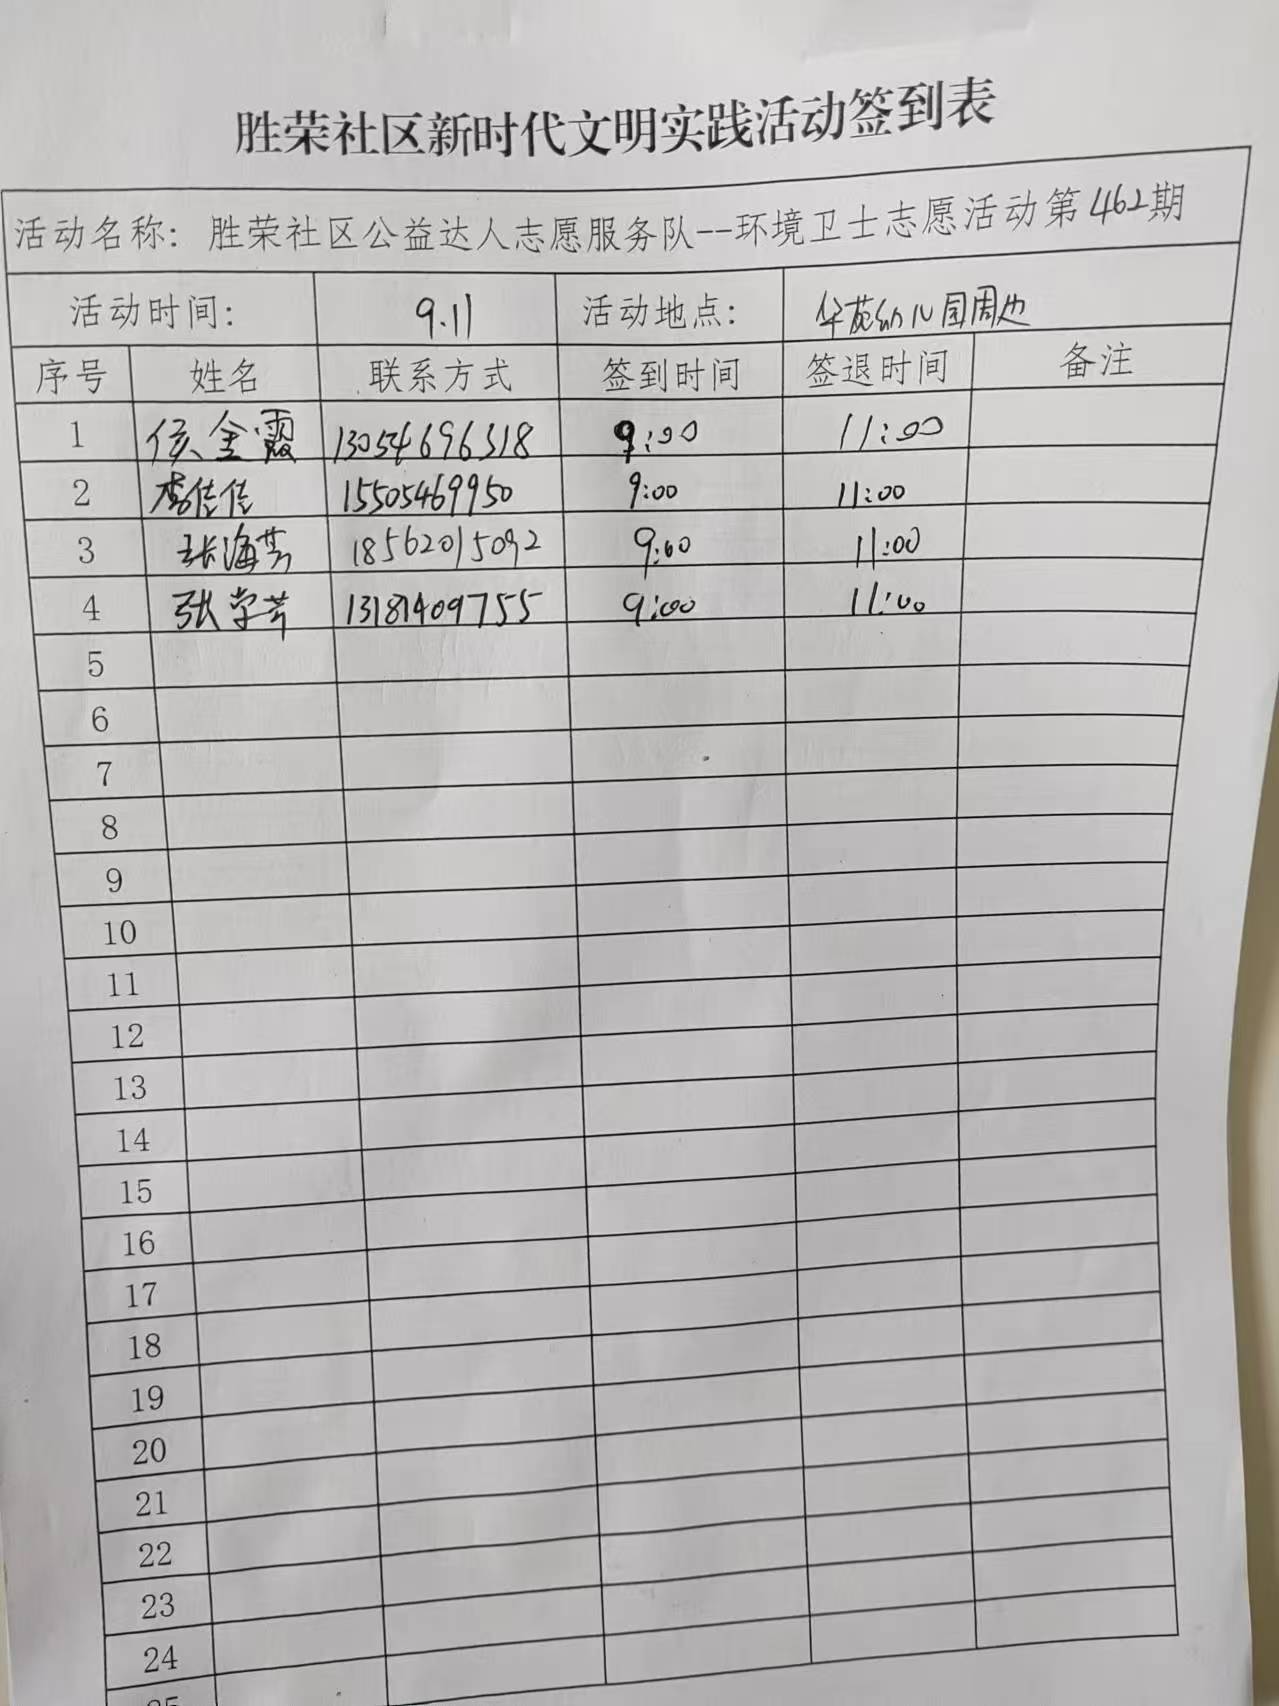 胜荣社区新时代文明实践活动签到表
活动名称：胜荣社区公益达人志愿服务队--环境卫士志愿活动第462期
活动时间： 9.11 活动地点： 华苑幼儿园周边
序号 姓名 联系方式 签到时间 签退时间 备注
1 侯金霞 13054696318 9:00 11:00
2 李佳佳 15505469950 9:00 11:00
3 张海芸 18562015092 9:00 11:00
4 张学芹 13181409755 9:00 11:00
5
6
7
8
9
10
11
12
13
14
15
16
17
18
19
20
21
22
23
24
25